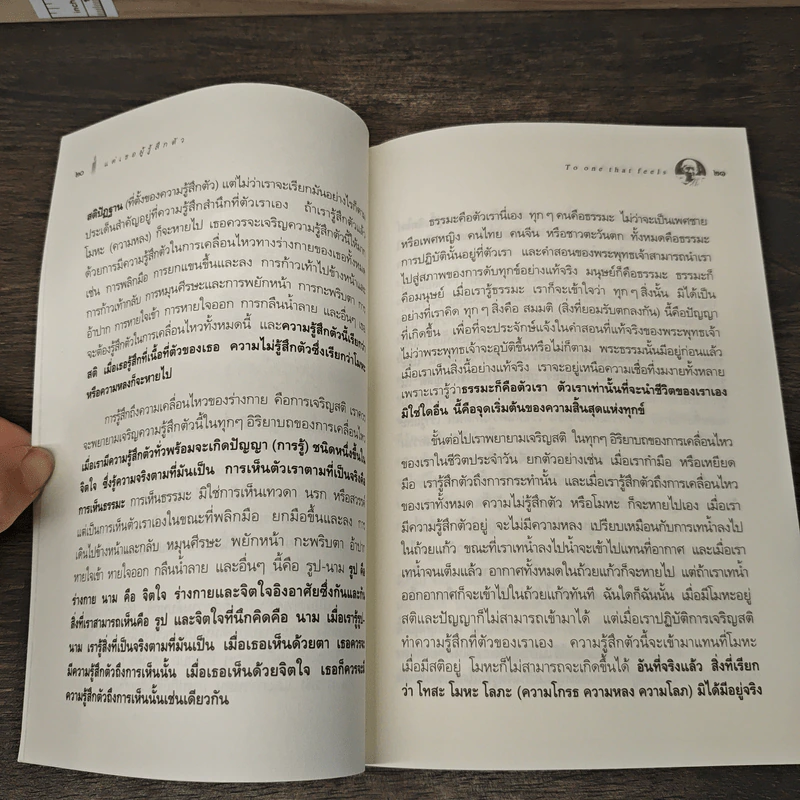 ๒๐ แด่เธอผู้รู้สึกตัว
สติปัฏฐาน (ที่ตั้งของความรู้สึกตัว) แต่ไม่ว่าเราจะเรียกมันอย่างไรก็ตาม
ประเด็นสำคัญอยู่ที่ความรู้สึกสำนึกที่ตัวเราเอง ถ้าเรารู้สึกตัวแล้ว
โมหะ (ความหลง) ก็จะหายไป เธอควรจะเจริญความรู้สึกตัวนี้ให้มาก
ด้วยการมีความรู้สึกตัวในการเคลื่อนไหวทางร่างกายของเธอทั้งหมด
เช่น การพลิกมือ การยกแขนขึ้นและลง การก้าวเท้าไปข้างหน้าและ
การก้าวเท้ากลับ การหมุนศีรษะและการพยักหน้า การกะพริบตา การ
อ้าปาก การหายใจเข้า การหายใจออก การกลืนน้ำลาย และอื่นๆ เธอ
จะต้องรู้สึกตัวในการเคลื่อนไหวทั้งหมดนี้ และความรู้สึกตัวนี้เรียกว่า
สติ เมื่อเธอรู้สึกที่เนื้อที่ตัวของเธอ ความไม่รู้สึกตัวซึ่งเรียกว่าโมหะ
หรือความหลงก็จะหายไป
การรู้สึกถึงความเคลื่อนไหวของร่างกาย คือการเจริญสติ เราควร
จะพยายามเจริญความรู้สึกตัวนี้ในทุกๆ อิริยาบถของการเคลื่อนไหว
เมื่อเรามีความรู้สึกตัวทั่วพร้อมจะเกิดปัญญา (การรู้) ชนิดหนึ่งขึ้นใน
จิตใจ ซึ่งรู้ความจริงตามที่มันเป็น การเห็นตัวเราตามที่เป็นจริงคือ
การเห็นธรรมะ การเห็นธรรมะ มิใช่การเห็นเทวดา นรก หรือสวรรค์
แต่เป็นการเห็นตัวเราเองในขณะที่พลิกมือ ยกมือขึ้นและลง การ
เดินไปข้างหน้าและกลับ หมุนศีรษะ พยักหน้า กะพริบตา อ้าปาก
หายใจเข้า หายใจออก กลืนน้ำลาย และอื่นๆ นี้คือ รูป-นาม รูป คือ
ร่างกาย นาม คือ จิตใจ ร่างกายและจิตใจอิงอาศัยซึ่งกันและกัน
สิ่งที่เราสามารถเห็นคือ รูป และจิตใจที่นึกคิดคือ นาม เมื่อเรารู้รูป-
นาม เรารู้สิ่งที่เป็นจริงตามที่มันเป็น เมื่อเธอเห็นด้วยตา เธอควรจะ
มีความรู้สึกตัวถึงการเห็นนั้น เมื่อเธอเห็นด้วยจิตใจ เธอก็ควรจะมี
ความรู้สึกตัวถึงการเห็นนั้นเช่นเดียวกัน
To one that feels ๒๑
ธรรมะคือตัวเรานี่เอง ทุกๆ คนคือธรรมะ ไม่ว่าจะเป็นเพศชาย
หรือเพศหญิง คนไทย คนจีน หรือชาวตะวันตก ทั้งหมดคือธรรมะ
การปฏิบัตินั้นอยู่ที่ตัวเรา และคำสอนของพระพุทธเจ้าสามารถนำเรา
ไปสู่สภาพของการดับทุกข์อย่างแท้จริง มนุษย์ก็คือธรรมะ ธรรมะก็
คือมนุษย์ เมื่อเรารู้ธรรมะ เราก็จะเข้าใจว่า ทุกๆ สิ่งนั้น มิได้เป็น
อย่างที่เราคิด ทุกๆ สิ่งคือ สมมติ (สิ่งที่ยอมรับตกลงกัน) นี้คือปัญญา
ที่เกิดขึ้น เพื่อที่จะประจักษ์แจ้งในคำสอนที่แท้จริงของพระพุทธเจ้า
ไม่ว่าพระพุทธเจ้าจะอุบัติขึ้นหรือไม่ก็ตาม พระธรรมนั้นมีอยู่ก่อนแล้ว
เมื่อเราเห็นสิ่งนี้อย่างแท้จริง เราจะอยู่เหนือความเชื่อที่งมงายทั้งหลาย
เพราะเรารู้ว่าธรรมะก็คือตัวเรา ตัวเราเท่านั้นที่จะนำชีวิตของเราเอง
มิใช่ใดอื่น นี้คือจุดเริ่มต้นของความสิ้นสุดแห่งทุกข์
ขั้นต่อไปเราพยายามเจริญสติ ในทุกๆ อิริยาบถของการเคลื่อนไหว
ของเราในชีวิตประจำวัน ยกตัวอย่างเช่น เมื่อเรากำมือ หรือเหยียด
มือ เรารู้สึกถึงการกระทำนั้น และเมื่อเรารู้สึกถึงการเคลื่อนไหว
ของเราทั้งหมด ความไม่รู้สึกตัว หรือโมหะ ก็จะหายไปเอง เมื่อเรา
มีความรู้สึกตัวอยู่ จะไม่มีความหลง เปรียบเหมือนกับการเทน้ำลงไป
ในถ้วยแก้ว ขณะที่เราเทน้ำลงไปน้ำจะเข้าไปแทนที่อากาศ และเมื่อเรา
เทน้ำจนเต็มแล้ว อากาศทั้งหมดในถ้วยแก้วก็จะหายไป แต่ถ้าเราเทน้ำ
ออกอากาศก็จะเข้าไปในถ้วยแก้วทันที ฉันใดก็ฉันนั้น เมื่อมีโมหะอยู่
สติและปัญญาก็ไม่สามารถเข้ามาได้ แต่เมื่อเราปฏิบัติการเจริญสติ
ทำความรู้สึกที่ตัวของเราเอง ความรู้สึกตัวนี้จะเข้ามาแทนที่โมหะ
เมื่อมีสติอยู่ โมหะก็ไม่สามารถจะเกิดขึ้นได้ อันที่จริงแล้ว สิ่งที่เรียก
ว่า โทสะ โมหะ โลภะ (ความโกรธ ความหลง ความโลภ) มิได้มีอยู่จริง